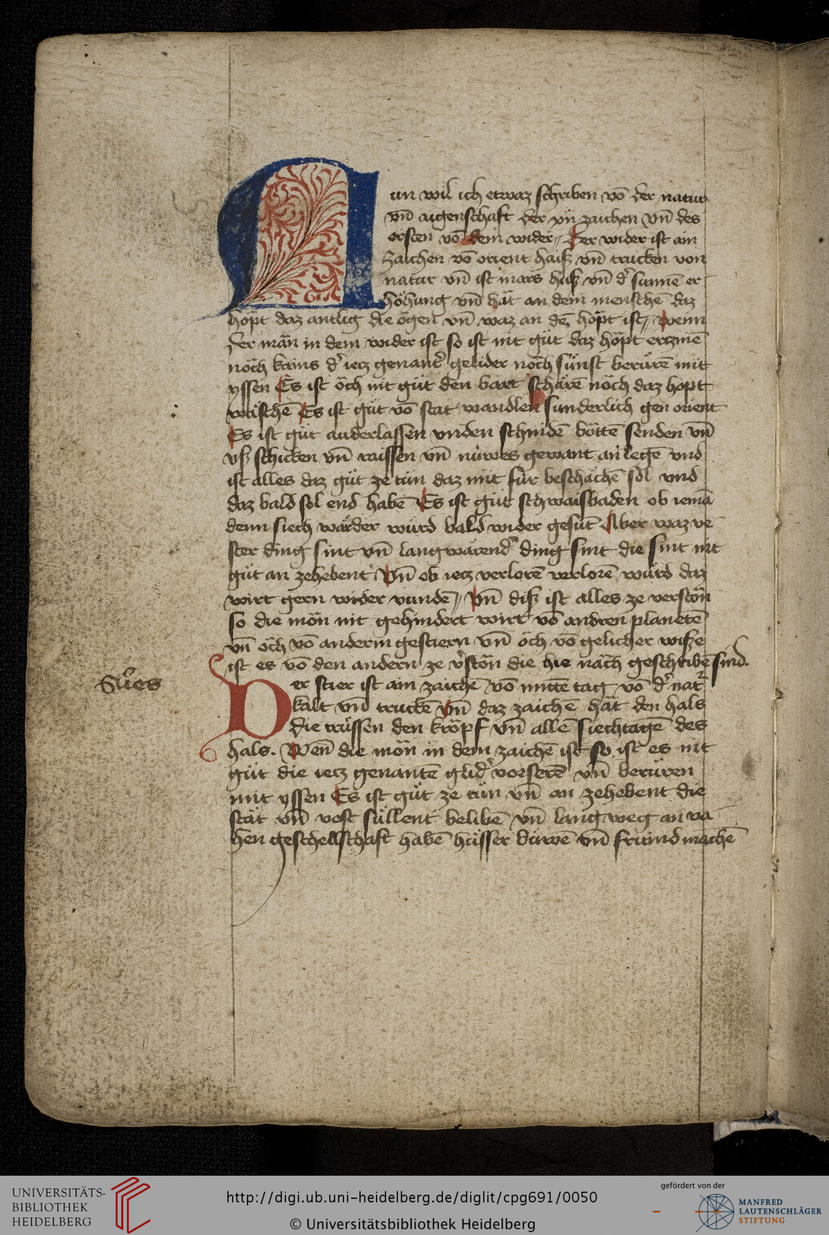 Nun wil ich etwaz schriben vō der natur
vnd aigenschaft der xij zaichen vnd des
ersten vō dem wider Der wider ist ain
zaichen vō orient haiß vnd trucken von
natur vnd ist mars huß vnd dˢ sunnē er
höhung vnd hāt an dem menschē daz
höpt daz antlig die ögen vnd waz an dē höpt ist Wenn
der mān in dem wider ist so ist nit gůt daz höpt erznie
noch kains dˢ iecz genantē gelider noch sunst berürē mit
yssen Es ist öch nit gůt den bart schärē noch daz höpt
wäschē Es ist gůt vō stat wandlen sunderlich gen orient
Es ist gůt auderlassen vnden schnidē bottē senden vnd
vß schicken vnd raissen vnd nüwes gewant an lege vnd
ist alles daz gůt ze tůn daz mit für beschächē sol vnd
daz bald sol end habē Es ist gůt schwaisbaden ob iemā
denn siech wärder würd bald wider gesūt Aber waz ve
ster ding sint vnd langwärend ding sint die sint nit
gůt an zehebent Vnd ob iecz verlorē verlorē würd daz
wirt gern wider vunde Vnd diß ist alles ze verstōn
so die mōn nit gehindert wirt vō andren planetē
vnd öch vō anderm gestiern vnd öch vō gelicher wiße
ist es vō den andern ze vˢstōn die hie nāch geschribē sind.
Der stier ist ain zaichē vō mitte tag vō dˢ nat
kalt vnd truckē vnd daz zaichē hāt den hals
die trüssen den kröpf vnd allē siechtagē des
hals. Wen die mōn in dem zaichē ist so ist es nit
gůt die iecz genantē glidˢ vorserē vnd berüren
mit yssen Es ist gůt ze tůn vnd an zehebent die
stät vnd vest süllent belibē vnd lang weg an va
hen geschellschaft habē hüsser buwē vnd fründ machē
UNIVERSITÄTS-
BIBLIOTHEK
HEIDELBERG
http://digi.ub.uni-heidelberg.de/diglit/cpg691/0050
© Universitätsbibliothek Heidelberg
gefördert von der
MANFRED
LAUTENSCHLÄGER
STIFTUNG